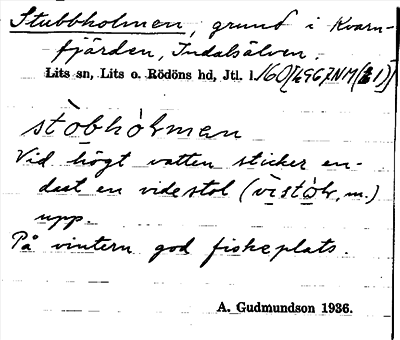 Stubbholmen, grund i Kvarn-
fjärden, Indalsälven.
Lits sn, Lits o. Rödöns hd, Jtl. l.
stòbhòlmen
Vid högt vatten sticker en-
dast en videstol (vìstòl, m.)
upp.
På vintern god fiskeplats.
A. Gudmundson 1936.